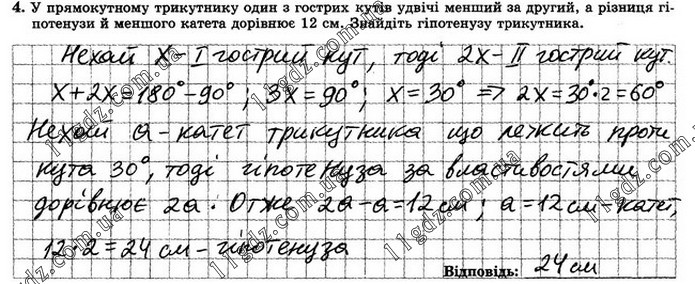 4. У прямокутному трикутнику один з гострих кутів удвічі менший за другий, а різниця гі-
потенузи й меншого катета дорівнює 12 см. Знайдіть гіпотенузу трикутника.
Нехай x - I гострий кут, тоді 2x - II гострий кут.
x+2x=180°-90°; 3x=90°; x=30° => 2x=30°·2=60°
Нехай a - катет трикутника що лежить проти
кута 30°, тоді гіпотенуза за властивостями
дорівнює 2a. Отже 2a-a=12 см; a=12 см - катет,
12·2=24 см - гіпотенуза
Відповідь: 24 см
11gdz.com.ua